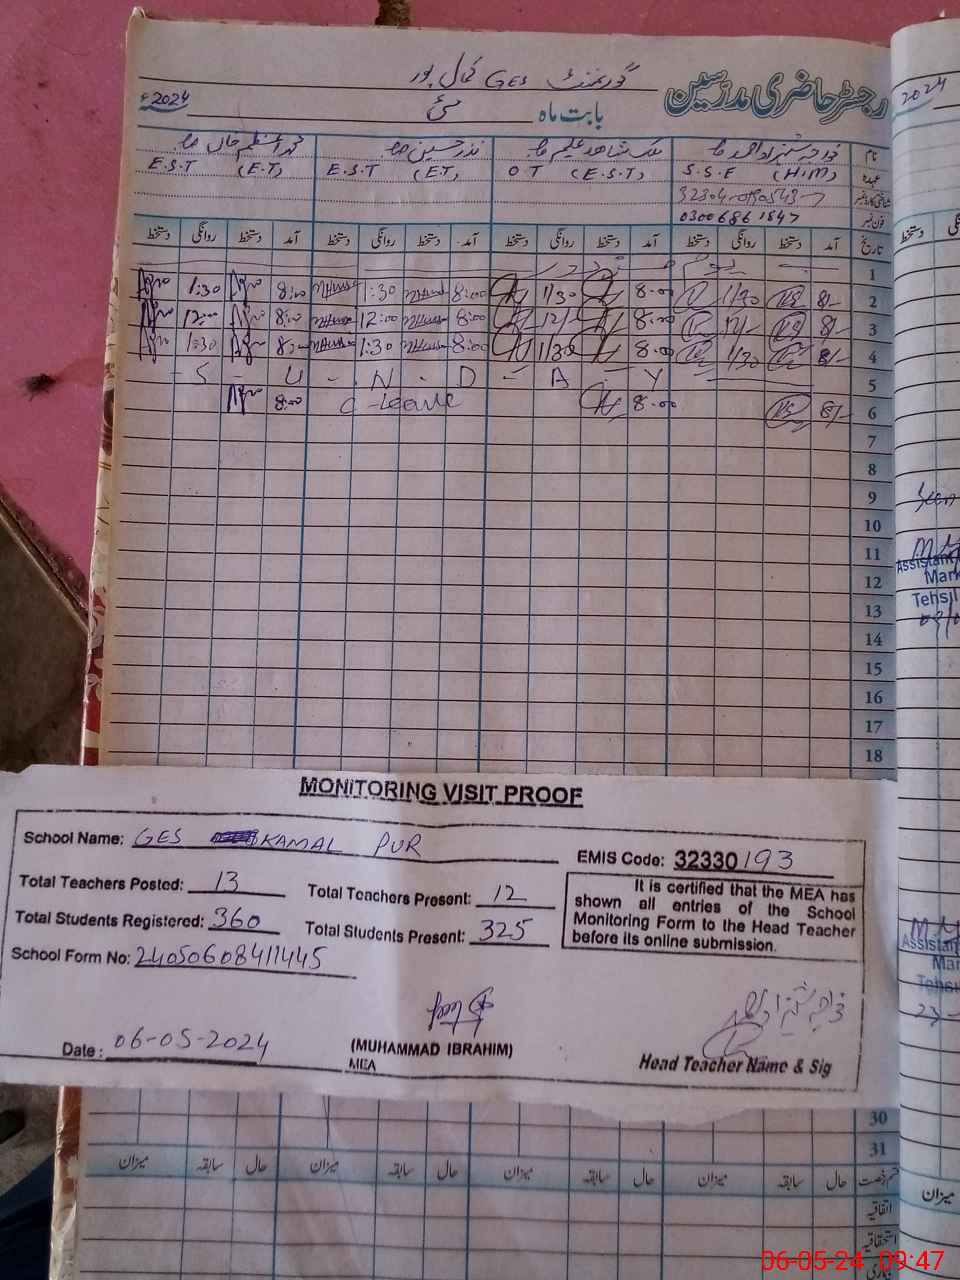 گورنمنٹ GES کمال پور
رجسٹر حاضری مدرسین
بابت ماہ مئی 2024ء
نام خواجہ شہزاد احمد ملک شاہد علیم نذر حسین محمد اعظم خان
عہدہ S.S.E (H.M) O T (E.S.T) E.S.T (E.T) E.S.T (E.T)
شناختی کارڈ نمبر
فون نمبر 03006861847
تاریخ آمد دستخط روانگی دستخط آمد دستخط روانگی دستخط آمد دستخط روانگی دستخط آمد دستخط روانگی دستخط
1
2 8/- 1/30 8.00 1/30 8:00 1:30 8:00 1:30
3 8/- 12/- 8.00 12/- 8:00 12:00 8:00 12:00
4 8/- 1/30 8.00 1/30 8:00 1:30 8:00 1:30
5 S - U - N - D - A - Y
6 8/- 8.00 C-leave 8:00
7
8
9
10
11
12
13
14
15
16
17
18
MONITORING VISIT PROOF
School Name: GES KAMAL PUR
EMIS Code: 32330193
Total Teachers Posted: 13
Total Teachers Present: 12
Total Students Registered: 360
Total Students Present: 325
School Form No: 24050608411445
It is certified that the MEA has
shown all entries of the School
Monitoring Form to the Head Teacher
before its online submission.
Date: 06-05-2024
(MUHAMMAD IBRAHIM)
MEA
Head Teacher Name & Sig
30
31
حال سابقہ میزان حال سابقہ میزان حال سابقہ میزان حال سابقہ میزان
اتفاقیہ
استحقاقیہ
2024
دستخط
Seen
Assistant
Mar
Tehsil
Assistan
Mar
Tehsi
میزان
06-05-24 09:47